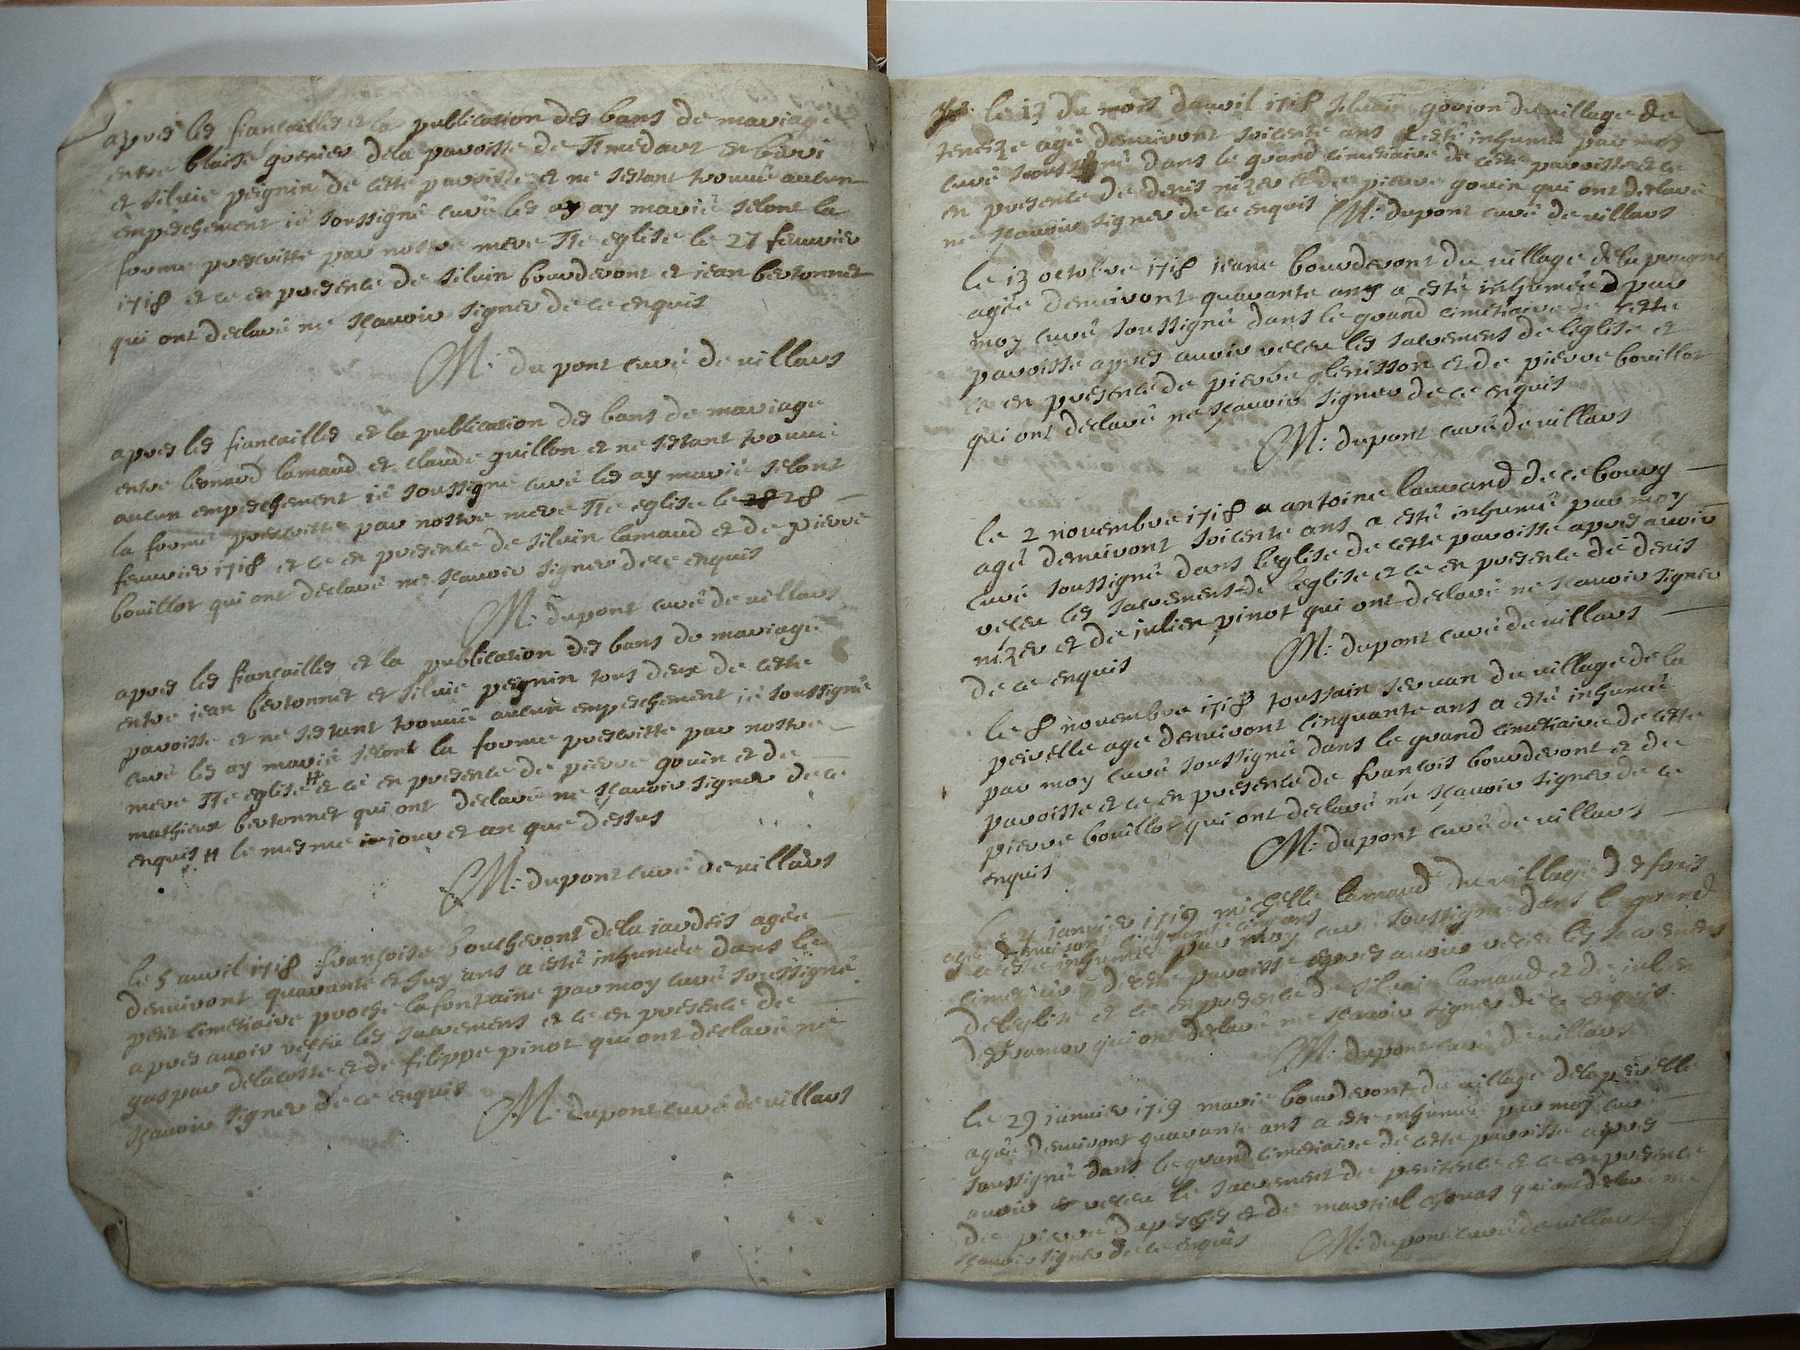 apres les fiançailles et la publication des bans de mariage
entre blaise grenier de la paroisse de St medart en barri
et silvie peignin de cette paroisse et ne sestant trouué aucun
empeschement ie soussigné curé les ay ay marié selont la
forme prescritte par nostre mere Ste eglise le 27 feurier
1718 et ce en presence de siluin bourderont et jean bertonnet
qui ont declaré ne sçauoir signer de ce enquis
M: dupont curé de villars
apres les fiançailles et la publication des bans de mariage
entre leonard lamaud et claude guillon et ne sestant trouué
aucun empeschement ie soussigné curé les ay marié selont
la forme prescritte par nostre mere Ste eglise le 28
feurier 1718 et ce en presence de siluin lamaud et de pierre
bouillot qui ont declaré ne sçauoir signer de ce enquis
M: dupont curé de villars
apres les fiançailles et la publication des bans de mariage
entre jean bertonnet et siluie peignin tous deux de cette
paroisse et ne sestant trouué aucun empeschement ie soussigné
curé les ay marié selont la forme prescritte par nostre
mere Ste eglise # et ce en presence de pierre gouin et de
mathieux bertonnet qui ont declaré ne sçauoir signer de ce
enquis # le mesme jour et an que dessus
M: dupont curé de villars
le 5 auril 1718 françoise boucheront de la jaudeis agée
denuiront quarante et huy ans a esté inhumée dans le
petit cimetiaire proche la fontaine par moy curé soussigné
apres auoir receu les sacremens et ce en presence de
gaspar delacoste et de filippe pinot qui ont declaré ne
sçauoir signer de ce enquis
M: dupont curé de villars
le 13 du mois dauril 1718 siluain goujon du uillage de
teneize agé denuiront soicente ans a esté inhumé par moy
curé soussigné dans le grand cimetiaire de cette paroisse et ce
en presence de denis nizer et de pierre gouin qui ont declaré
ne sçauoir signer de ce enquis M: dupont curé de villars
le 13 octobre 1718 jeanne bourderont du uillage de la prugne
agée denuiront quarante ans a esté inhumée par
moy curé soussigné dans le grand cimetiaire de cette
paroisse apres auoir receu les sacremens de leglise et
ce en presence de pierre glenisson et de pierre bouillot
qui ont declaré ne sçauoir signer de ce enquis
M: dupont curé de villars
le 2 nouembre 1718 antoine laurand de ce bourg
agé denuiront soicente ans a esté inhumé par moy
curé soussigné dans leglise de cette paroisse apres auoir
receu les sacremens de leglise et ce en presence de denis
nizer et de julien pinot qui ont declaré ne sçauoir signer
de ce enquis
M: dupont curé de villars
le 8 nouembre 1718 toussain seruan du uillage de la
peirelle age denuiront cinquante ans a esté inhumé
par moy curé soussigné dans le grand cimetiaire de cette
paroisse et ce en presence de françois bourderont et de
pierre bouillot qui ont declaré ne sçauoir signer de ce
enquis
M: dupont curé de villars
januier 1719 michelle lamaud du uillage de
agée denuiront cinquante cinq ans
a esté inhumée par moy curé soussigné dans le grand
cimetiaire de cette paroisse apres auoir receu les sacremens
de leglise et ce en presence de siluain lamaud et de julien
qui ont declaré ne sçauoir signer de ce enquis
M: dupont curé de villars
le 29 januier 1719 marie bourderont du uillage de la peirelle
agée denuiront quarante ans a esté inhumée par moy curé
soussigné dans le grand cimetiaire de cette paroisse apres
auoir receu le sacrement de penitence et ce en presence
de pierre dupeché et de martial chouas qui ont declaré ne
sçauoir signer de ce enquis
M: dupont curé de villars